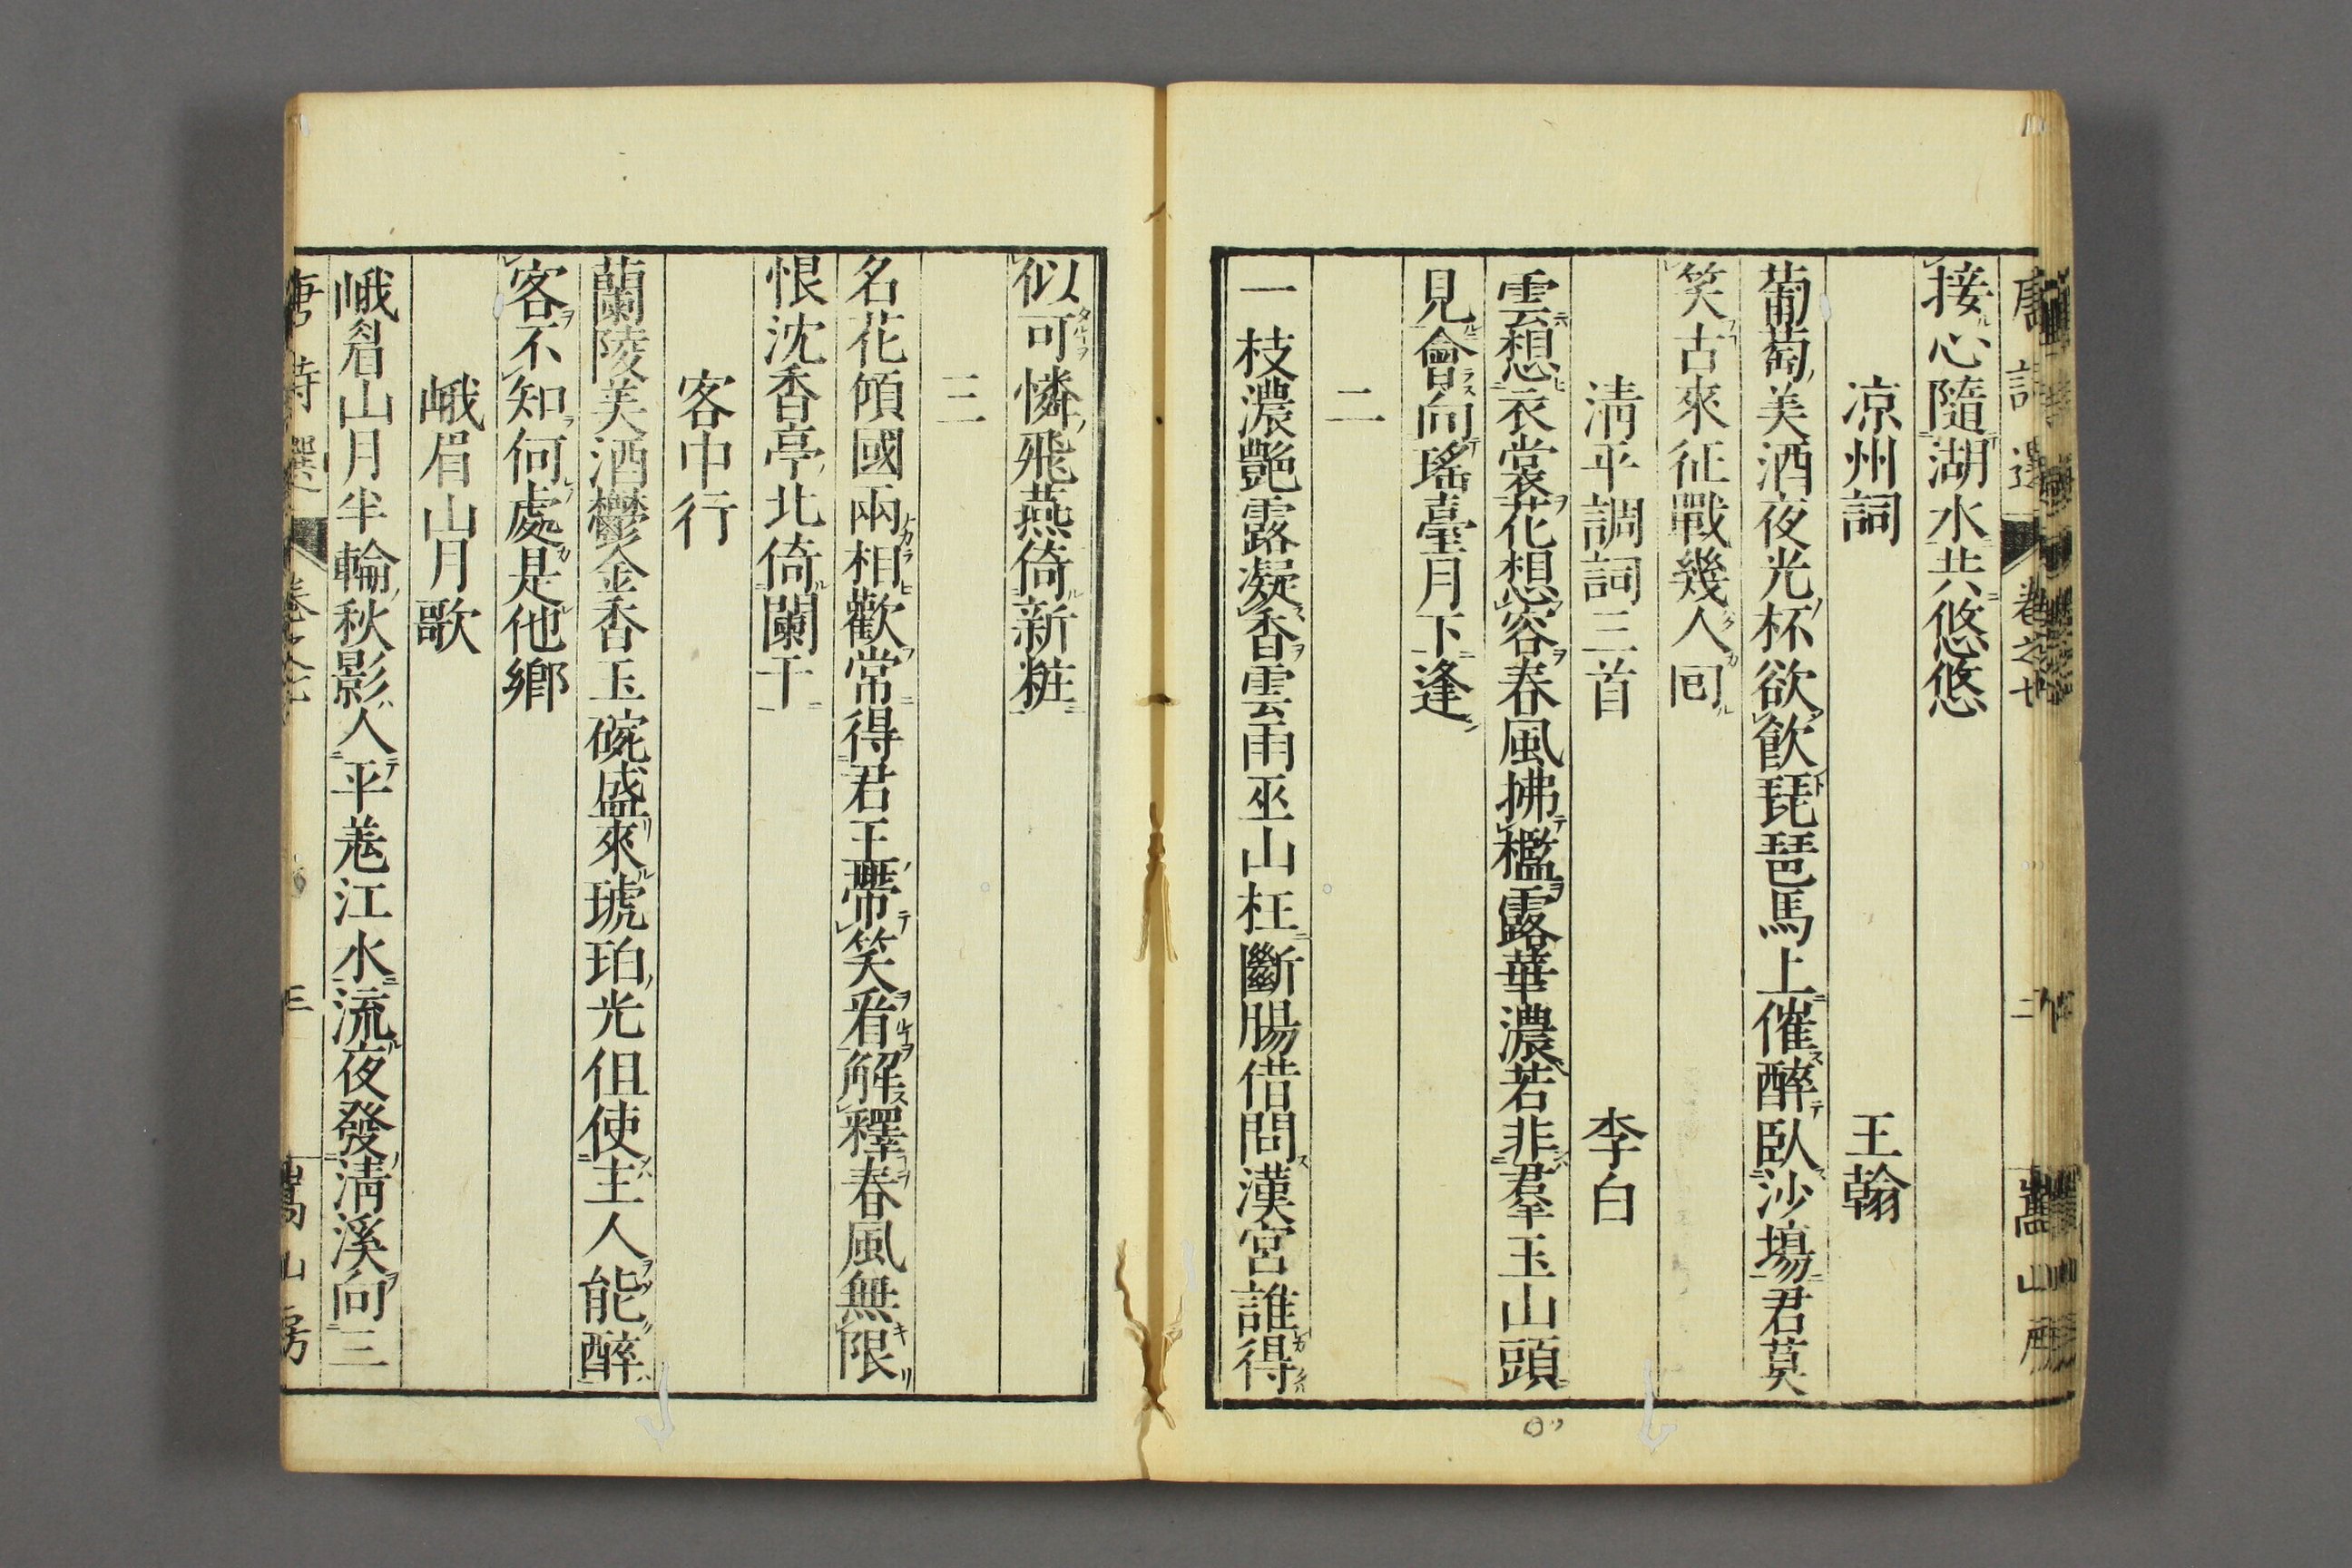 接心隨湖水共悠悠
凉州詞 王翰
葡萄美酒夜光杯欲飮琵琶馬上催醉臥沙塲君莫
笑古來征戰幾人回
淸平調詞三首 李白
雲想衣裳花想容春風拂檻露華濃若非羣玉山頭
見會向瑤臺月下逢
二
一枝濃艷露凝香雲雨巫山枉斷腸借問漢宮誰得
似可憐飛燕倚新粧
三
名花傾國兩相歡常得君王帶笑看解釋春風無限
恨沈香亭北倚闌干
客中行
蘭陵美酒鬱金香玉碗盛來琥珀光但使主人能醉
客不知何處是他鄉
峨眉山月歌
峨眉山月半輪秋影入平羗江水流夜發淸溪向三
唐詩選 卷之七 三 嵩山房